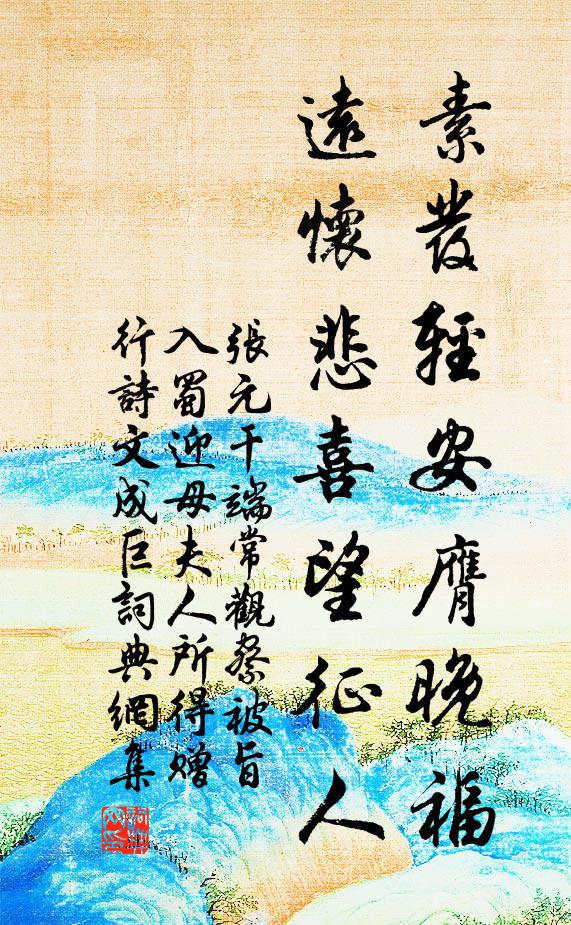 素發輕安膺晚福
遠懷悲喜望征人
張元干端常觀察被旨
入蜀迎母夫人所得贈
行詩文成巨詞典網集